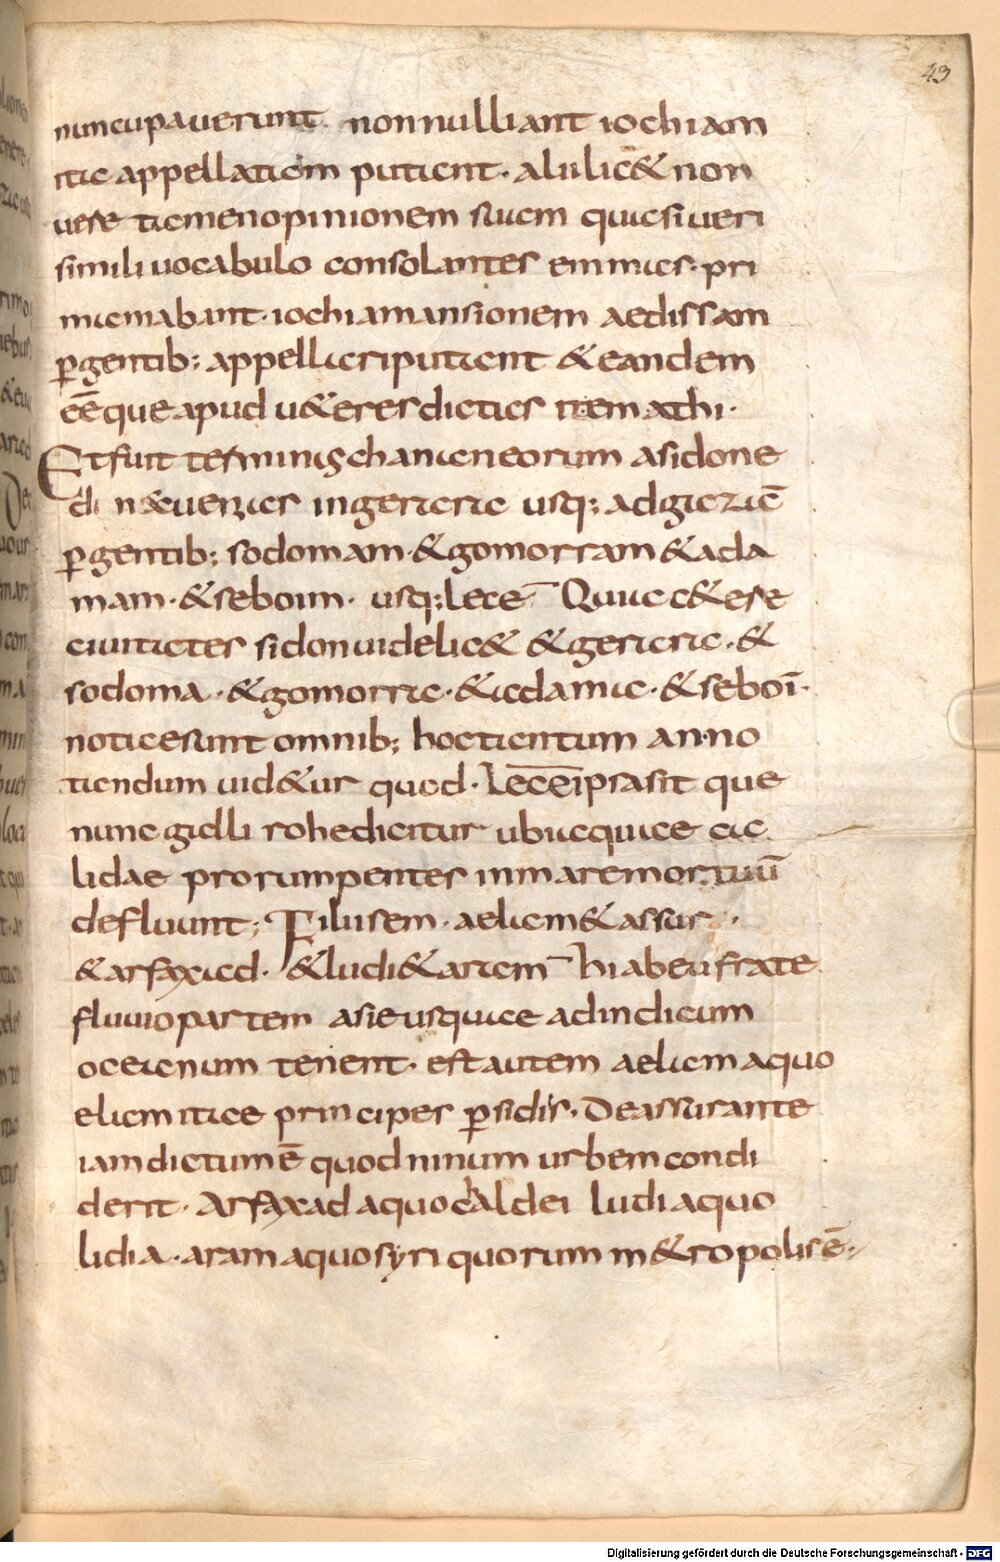 43
nuncupauerunt nonnulli ant iochiam
nac appellationem putant· alii lic& non
uere tamen opinionem suam quasi ueri
simili uocabulo consolantes emmas· pri
mam abant· iochiam ansionem aedissam
ꝑgentib; appellari putant & eandem
eē que apud u&eres dictas item athi·
Et fuit terminus chananeorum asidone
di nec uenias in gerara usq; ad gazā
ꝑgentib; sodomam·& gomorram & ada
mam·& seboim· usq; lece Quae c&ere
ciuitates sidon uidelic& & gerara·&
sodoma·& gomorra·& adama·& seboī·
notae sunt omnib; hoc tantum anno
tandum uid&ur quod· lece ipsa sit que
nunc calli rohe dicitur ubi aquae ca
lidae prorumpentes in mare mortuū
defluunt; Filii sem· aelam & assur·
& arfaxad· & ludi & aram Hi ab eufrate
fluuio partem asie usquae ad indicum
oceanum tenent· est autem aelam a quo
elamitae principes ꝑsidis· De assur ante
iam dictum ē quod ninum urbem condi
derit· Arfaxad a quo chaldei ludi a quo
lidia· aram a quo syri quorum m&ropolis ē·
Digitalisierung gefördert durch die Deutsche Forschungsgemeinschaft - DFG